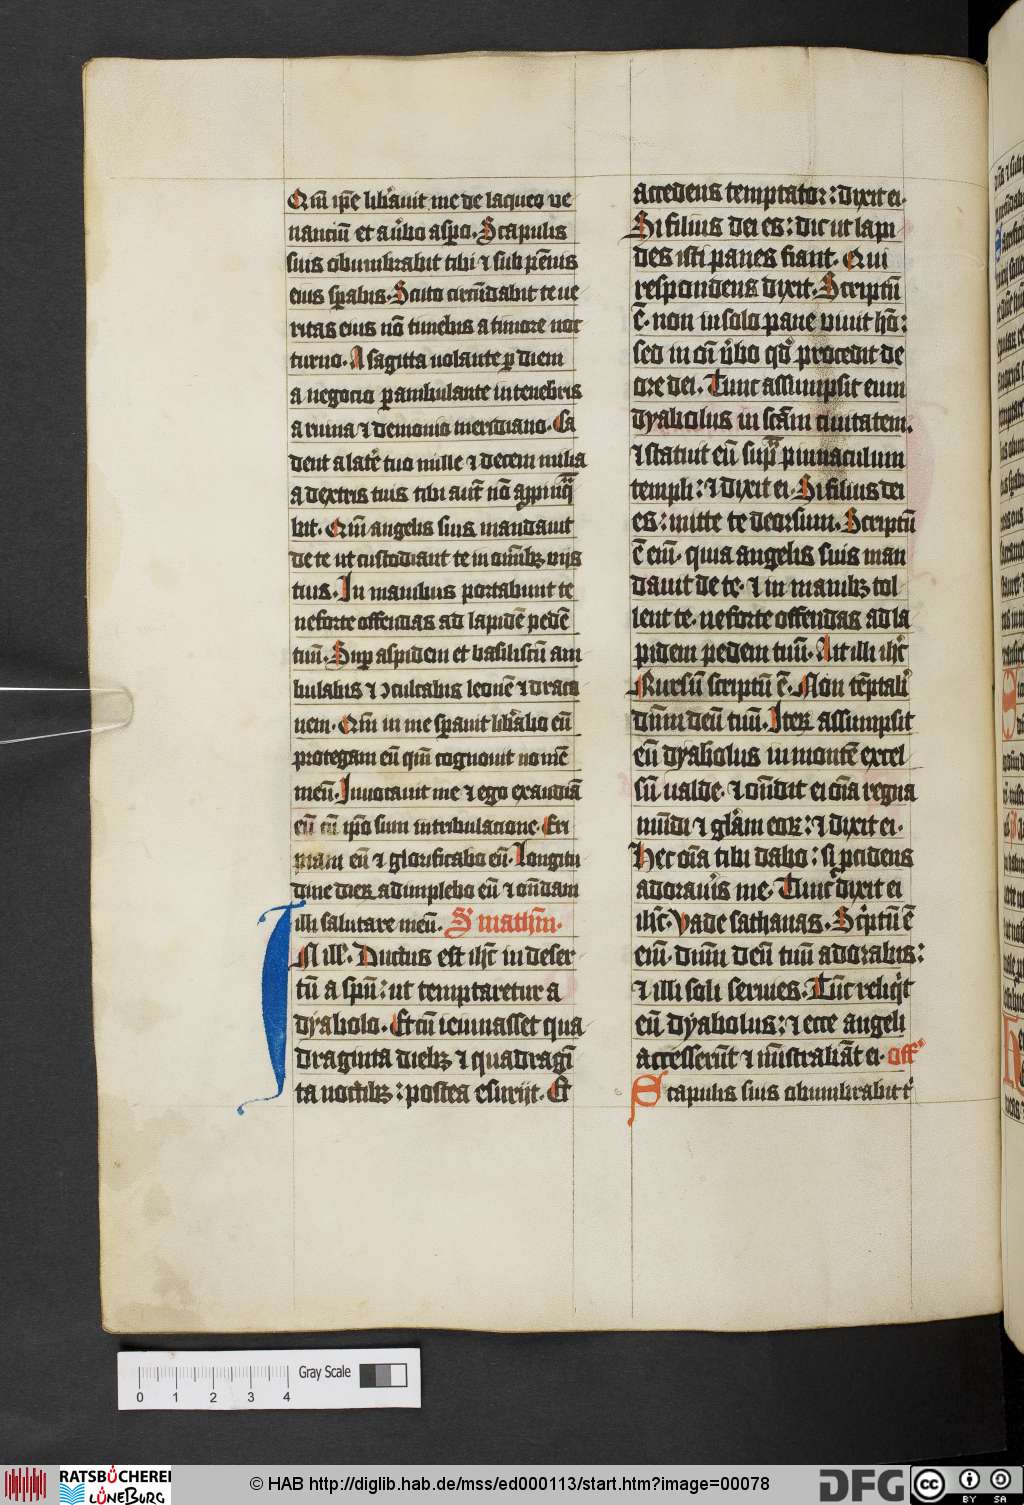 Qm̄ ip̄e lib̾auit me de laqueo ve
nanciū et a ṽbo asp̄o. Scapulis
suis obumbrabit tibi ⁊ sub pēnis
eius sp̄abis. Scuto circūdabit te ue
ritas eius nō timebis a timore noc
turno. A sagitta uolante p̱ diem
a negocio p̱ambulante in tenebris
a ruina ⁊ demonio meridiano. Ca
dent a late̾ tuo mille ⁊ decem milia
a dextris tuis tibi aut̄ nō appīq̄
bit. Qm̄ angelis suis mandauit
de te ut custodiant te in om̄ibꝫ vijs
tuis. In manibus portabunt te
ne forte offendas ad lapidē pedē
tuū. Sup̱ aspidem et basiliscū am
bulabis ⁊ ꝯculcabis leonē ⁊ draco
nem. Qm̄ in me sp̄auit lib̾abo eū
protegam eū qm̄ cognouit nomē
meū. Inuocauit me ⁊ ego exaudiā
eū cū ip̄o sum in tribulacione. Eri
piam eū ⁊ glorificabo eū. Longitu
dine dieꝝ adimplebo eū ⁊ on̄dam
illi salutare meū. S̾ mathm̄.
IN ill̾. Ductus est ihc̄ in deser
tū a sp̄u: ut temptaretur a
dyabolo. Et cū ieiunasset qua
draginta diebꝫ ⁊ quadragī
ta noctibꝫ: postea esurijt. Et
accedens temptator: dixit ei.
Si filius dei es: dic ut lapi
des isti panes fiant. Qui
respondens dixit. Scriptū
ē. non in solo pane uiuit hō:
sed in oī ṽbo qd̾ procedit de
ore dei. Tunc assumpsit eum
dyabolus in scām ciuitatem.
⁊ statuit eū supᵃ pinnaculum
templi: ⁊ dixit ei. Si filius dei
es: mitte te deorsum. Scriptū
ē eni̅. quia angelis suis man
dauit de te. ⁊ in manibꝫ tol
lent te. ne forte offendas ad la
pidem pedem tuū. Ait illi ihc̄
Rursū scriptū ē. Non tēptabi̾
dn̄m deū tuū. Iteꝝ assumpsit
eū dyabolus in montē excel
sū ualde. ⁊ on̄dit ei oīa regna
mūdi ⁊ gl̾am eoꝝ: ⁊ dixit ei.
Hec oīa tibi dabo: si pcidens
adorau̾is me. Tunc dixit ei
ihc̄. Vade sathanas. Sc̾ptū ē
eni̅. dn̄m deū tuū adorabis:
⁊ illi soli seruies. Tūc reliq̾t
eū dyabolus: ⁊ ecce angeli
accesserūt ⁊ mīstrabāt ei. off̾
Scapulis suis obumbrabit t̾
Gray Scale
0 1 2 3 4
RATSBÜCHEREI
LÜNEBURG
© HAB http://diglib.hab.de/mss/ed000113/start.htm?image=00078
DFG
cc BY SA